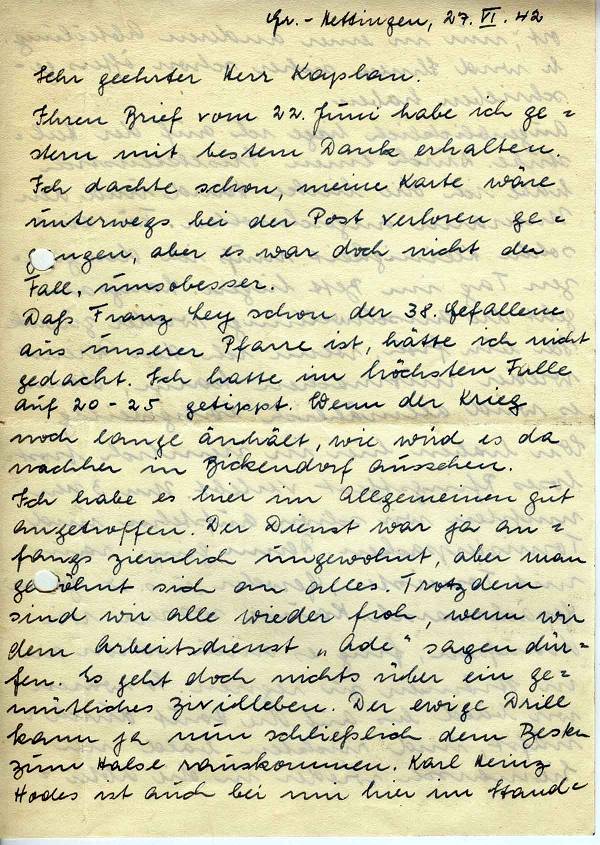 Gr.-Hettingen, 27. VI. 42
Sehr geehrter Herr Kaplan.
Ihren Brief vom 22. Juni habe ich ge=
stern mit bestem Dank erhalten.
Ich dachte schon, meine Karte wäre
unterwegs bei der Post verloren ge=
gangen, aber es war doch nicht der
Fall, umsobesser.
Daß Franz Ley schon der 38. Gefallene
aus unserer Pfarre ist, hätte ich nicht
gedacht. Ich hatte im höchsten Falle
auf 20 - 25 getippt. Wenn der Krieg
noch lange anhält, wie wird es da
nachher in Bickendorf aussehen.
Ich habe es hier im Allgemeinen gut
angetroffen. Der Dienst war ja an=
fangs ziemlich ungewohnt, aber man
gewöhnt sich an alles. Trotzdem
sind wir alle wieder froh, wenn wir
dem Arbeitsdienst „Ade“ sagen dür=
fen. Es geht doch nichts über ein ge=
mütliches Zivilleben. Der ewige Drill
kann ja nun schließlich dem Besten
zum Halse rauskommen. Karl Heinz
Hodes ist auch bei mir hier im Stand=